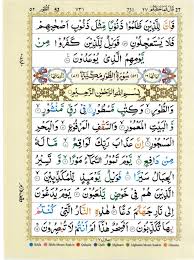 فَاِنَّ لِلَّذِيْنَ ظَلَمُوْا ذَنُوْبًا مِّثْلَ ذَنُوْبِ اَصْحٰبِهِمْ
فَلَا يَسْتَعْجِلُوْنِ ۝ فَوَيْلٌ لِّلَّذِيْنَ كَفَرُوْا مِنْ
يَّوْمِهِمُ الَّذِيْ يُوْعَدُوْنَ ۝
سُوْرَةُ الطُّوْرِ مَكِّيَّةٌ
بِسْمِ اللّٰهِ الرَّحْمٰنِ الرَّحِيْمِ
وَالطُّوْرِ ۝ وَكِتٰبٍ مَّسْطُوْرٍ ۝ فِيْ رَقٍّ مَّنْشُوْرٍ ۝
وَّالْبَيْتِ الْمَعْمُوْرِ ۝ وَالسَّقْفِ الْمَرْفُوْعِ ۝ وَالْبَحْرِ
الْمَسْجُوْرِ ۝ اِنَّ عَذَابَ رَبِّكَ لَوَاقِعٌ ۝ مَّا لَهٗ مِنْ
دَافِعٍ ۝ يَّوْمَ تَمُوْرُ السَّمَآءُ مَوْرًا ۝ وَّتَسِيْرُ
الْجِبَالُ سَيْرًا ۝ فَوَيْلٌ يَّوْمَئِذٍ لِّلْمُكَذِّبِيْنَ ۝
الَّذِيْنَ هُمْ فِيْ خَوْضٍ يَّلْعَبُوْنَ ۝ يَوْمَ يُدَعُّوْنَ
اِلٰى نَارِ جَهَنَّمَ دَعًّا ۝ هٰذِهِ النَّارُ الَّتِيْ كُنْتُمْ
بِهَا تُكَذِّبُوْنَ ۝ اَفَسِحْرٌ هٰذَآ اَمْ اَنْتُمْ لَا تُبْصِرُوْنَ ۝